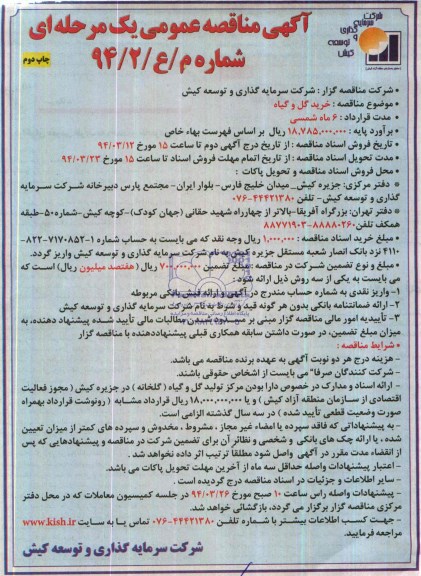 شرکت
سرمایه
گذاری
و
توسعه
کیش
آگهی مناقصه عمومی یک مرحله ای
شماره م/ع/۹۴/۲
چاپ دوم
• شرکت مناقصه گزار : شرکت سرمایه گذاری و توسعه کیش
• موضوع مناقصه : خرید گل و گیاه
• مدت قرارداد : ۶ ماه شمسی
• برآورد پایه : ۱۸,۷۸۵,۰۰۰,۰۰۰ ریال بر اساس فهرست بهاء خاص
• تاریخ فروش اسناد مناقصه : از تاریخ درج آگهی دوم تا ساعت ۱۵ مورخ ۹۴/۰۳/۱۲
• مدت تحویل اسناد مناقصه : از تاریخ اتمام مهلت فروش اسناد تا ساعت ۱۵ مورخ ۹۴/۰۳/۲۳
• محل فروش اسناد مناقصه و تحویل پاکات :
* دفتر مرکزی: جزیره کیش- میدان خلیج فارس- بلوار ایران- مجتمع پارس دبیرخانه شرکت سرمایه
گذاری و توسعه کیش- تلفن ۴۴۴۲۱۳۸۰-۰۷۶
* دفتر تهران: بزرگراه آفریقا-بالاتر از چهارراه شهید حقانی (جهان کودک)-کوچه کیش-شماره۵۰-طبقه
همکف تلفن ۸۸۸۸۰۲۶۰-۸۸۷۷۱۹۰۳
• مبلغ خرید اسناد مناقصه : ۱,۰۰۰,۰۰۰ ریال وجه نقد که می بایست به حساب شماره ۱-۷۱۷۰۸۵۲-۸۲۲-
۴۱۱۰ نزد بانک انصار شعبه مستقل جزیره کیش به نام شرکت سرمایه گذاری و توسعه کیش واریز گردد.
• مبلغ و نوع تضمین شرکت در مناقصه : مبلغ تضمین ۷۰۰,۰۰۰,۰۰۰ ریال (هفتصد میلیون ریال) است که
می بایست به یکی از سه روش ذیل ارائه شود.
۱- واریز نقدی به شماره حساب مندرج در آگهی و ارائه فیش بانکی مربوطه
۲- ارائه ضمانتنامه بانکی بدون هر گونه قید و شرط به نام شرکت سرمایه گذاری و توسعه کیش
۳- تأییدیه امور مالی مناقصه گزار مبنی بر مسدود شدن مطالبات مالی تأیید شده پیشنهاد دهنده، به
میزان مبلغ تضمین، در صورت داشتن سابقه همکاری قبلی پیشنهاددهنده با مناقصه گزار
• شرایط مناقصه :
- هزینه درج هر دو نوبت آگهی به عهده برنده مناقصه می باشد.
- شرکت کنندگان صرفا" می بایست از اشخاص حقوقی باشند.
- ارائه اسناد و مدارک در خصوص دارا بودن مرکز تولید گل و گیاه ( گلخانه ) در جزیره کیش ( مجوز فعالیت
اقتصادی از سازمان منطقه آزاد کیش ) و یا ۱۸,۰۰۰,۰۰۰,۰۰۰ ریال قرارداد مشابه ( رونوشت قرارداد بهمراه
صورت وضعیت قطعی تأیید شده ) در سه سال گذشته الزامی است.
- به پیشنهاداتی که فاقد سپرده یا امضاء غیر مجاز ، مشروط ، مخدوش و سپرده های کمتر از میزان تعیین
شده ، یا ارائه چک های بانکی و شخصی و نظائر آن برای تضمین شرکت در مناقصه و پیشنهادهایی که پس
از انقضاء مدت مقرر در آگهی واصل شود مطلقا ترتیب اثر داده نخواهد شد .
- اعتبار پیشنهادات واصله حداقل سه ماه از آخرین مهلت تحویل پاکات می باشد.
- سایر اطلاعات و جزئیات در اسناد مناقصه درج گردیده است .
- پیشنهادات واصله راس ساعت ۱۰ صبح مورخ ۹۴/۰۳/۲۶ در جلسه کمیسیون معاملات که در محل دفتر
مرکزی مناقصه گزار برگزار می گردد، بازگشائی خواهد شد.
- جهت کسب اطلاعات بیشتر با شماره تلفن ۴۴۴۲۱۳۸۰-۰۷۶ تماس یا به سایت www.kish.ir
مراجعه فرمایید.
شرکت سرمایه گذاری و توسعه کیش